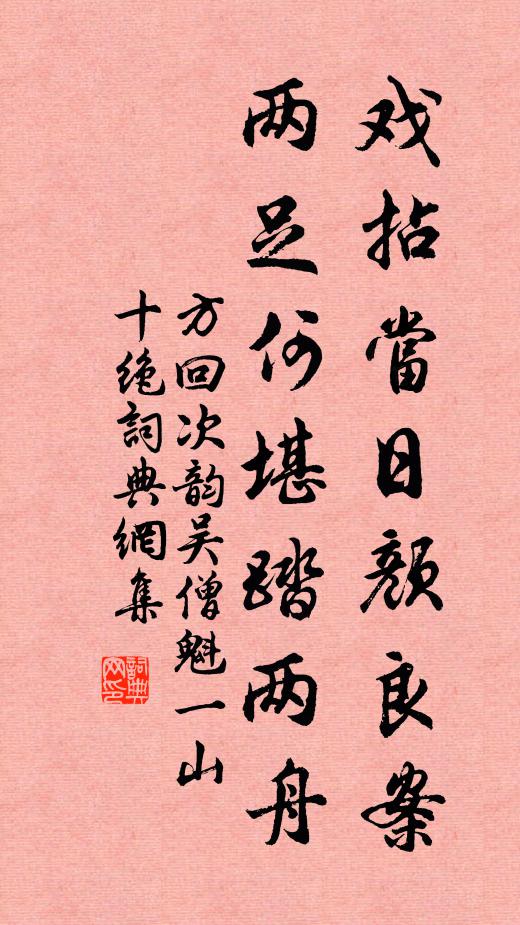 戏拈當日颜良案
两足何堪踏两舟
方回次韵吴僧魁一山
十绝詞典網集
詞典网印